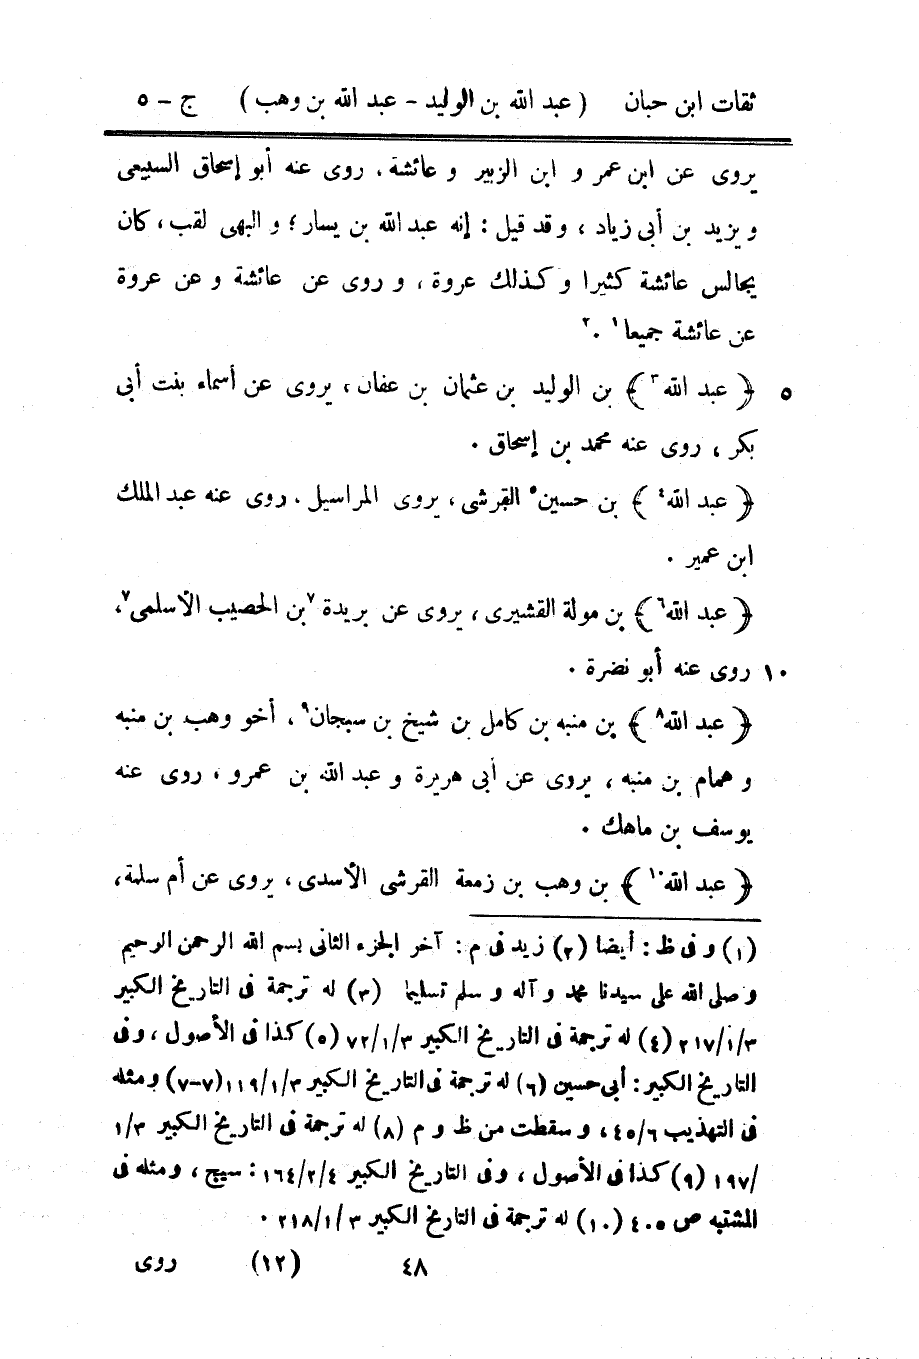 ثقات ابن حبان ( عبد الله بن الوليد - عبد الله بن وهب ) ج - ٥
يروى عن ابن عمر و ابن الزبير و عائشة ، روى عنه أبو إسحاق السبيعى
و يزيد بن أبى زياد ، و قد قيل : إنه عبد الله بن يسار ؛ و البهى لقب ، كان
يجالس عائشة كثيرا و كذلك عروة ، و روى عن عائشة و عن عروة
عن عائشة جميعا١ .٢
٥ ﴿ عبد الله٣ ﴾ بن الوليد بن عثمان بن عفان ، يروى عن أسماء بنت أبى
بكر ، روى عنه محمد بن إسحاق .
﴿ عبد الله٤ ﴾ بن حسين٥ القرشى ، يروى المراسيل . روى عنه عبد الملك
ابن عمير .
﴿ عبد الله٦ ﴾ بن مولة القشيرى ، يروى عن بريدة ٧بن الحصيب الأسلمى٧،
١٠ روى عنه أبو نضرة .
﴿ عبد الله٨ ﴾ بن منبه بن كامل بن شيخ بن سيجان٩ ، أخو وهب بن منبه
و همام بن منبه ، يروى عن أبى هريرة و عبد الله بن عمرو ، روى عنه
يوسف بن ماهك .
﴿ عبد الله١٠ ﴾ بن وهب بن زمعة القرشى الأسدى ، يروى عن أم سلمة ،
(١) و فى ظ : أيضا (٢) زيد فى م : آخر الجزء الثانى بسم الله الرحمن الرحيم
و صلى الله على سيدنا محمد و آله و سلم تسليما (٣) له ترجمة فى التاريخ الكبير
٢١٧/١/٣ (٤) له ترجمة فى التاريخ الكبير ٧٢/١/٣ (٥) كذا فى الأصول ، و فى
التاريخ الكبير : أبى حسين (٦) له ترجمة فى التاريخ الكبير ١١٩/١/٣ (٧-٧) و مثله
فى التهذيب ٤٥/٦ ، و سقطت من ظ و م (٨) له ترجمة فى التاريخ الكبير ١/٣
/١٩٧ (٩) كذا فى الأصول ، و فى التاريخ الكبير ١٦٤/٢/٤ : سيج ، و مثله فى
المشتبه ص ٤٠٥ (١٠) له ترجمة فى التاريخ الكبير ٢١٨/١/٣ .
٤٨ (١٢) روى